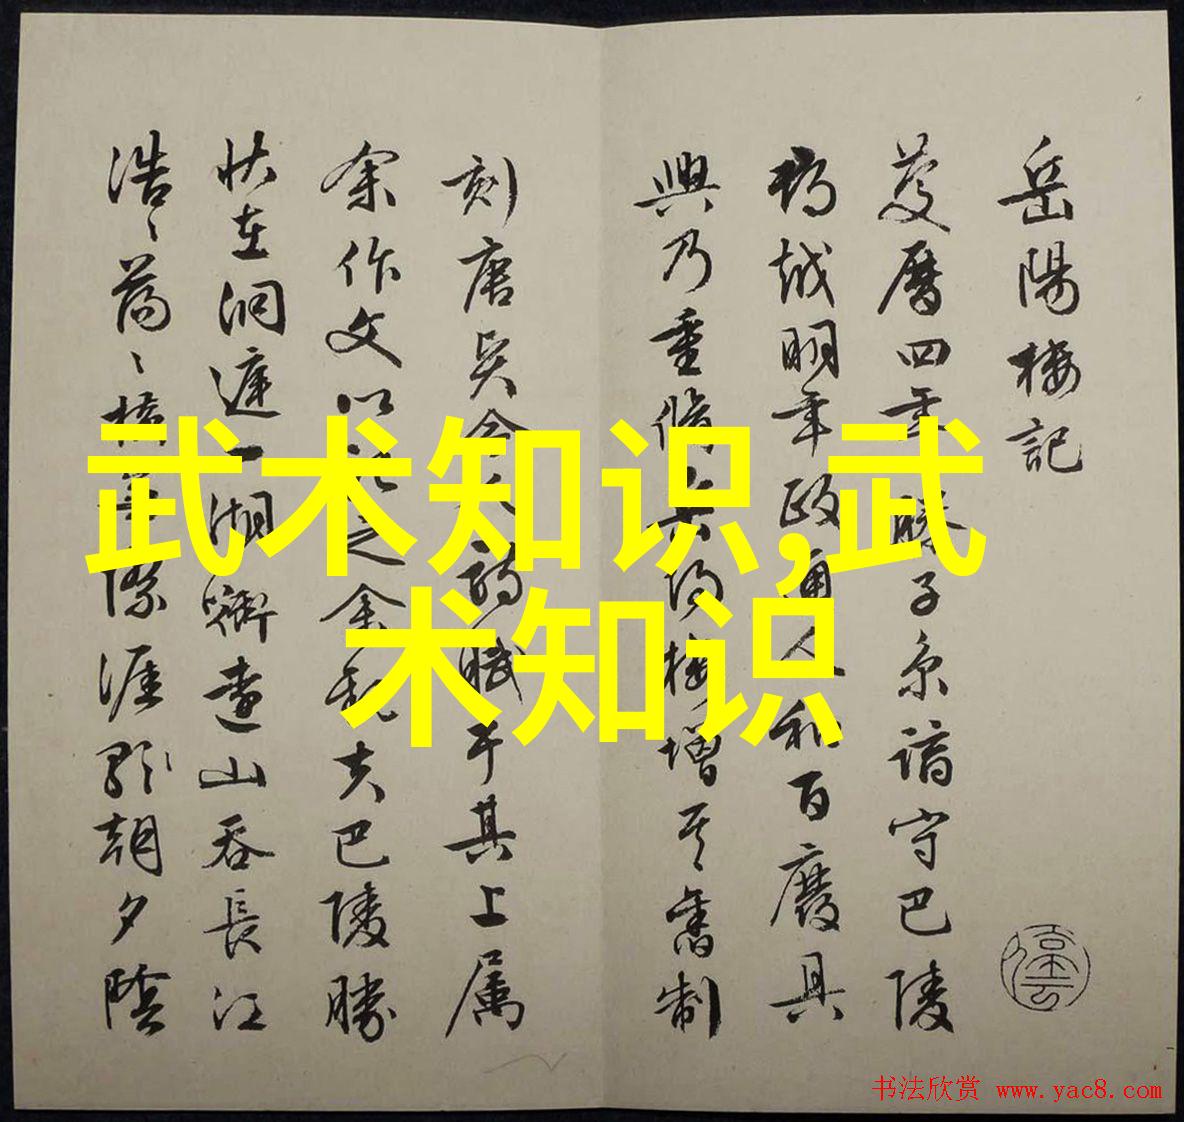 岳陽樓記
慶曆四年滕子京謫守巴陵
郡越明年政通人和百廢具
興乃重脩岳陽樓增其舊制
刻唐賢今人詩賦于其上属
余作文以記之余觀夫巴陵勝
状在洞庭一湖銜遠山吞長江
浩〻蕩〻橫無際涯朝夕陰
武术知识,武
术知识
书法欣赏 www.yac8.com